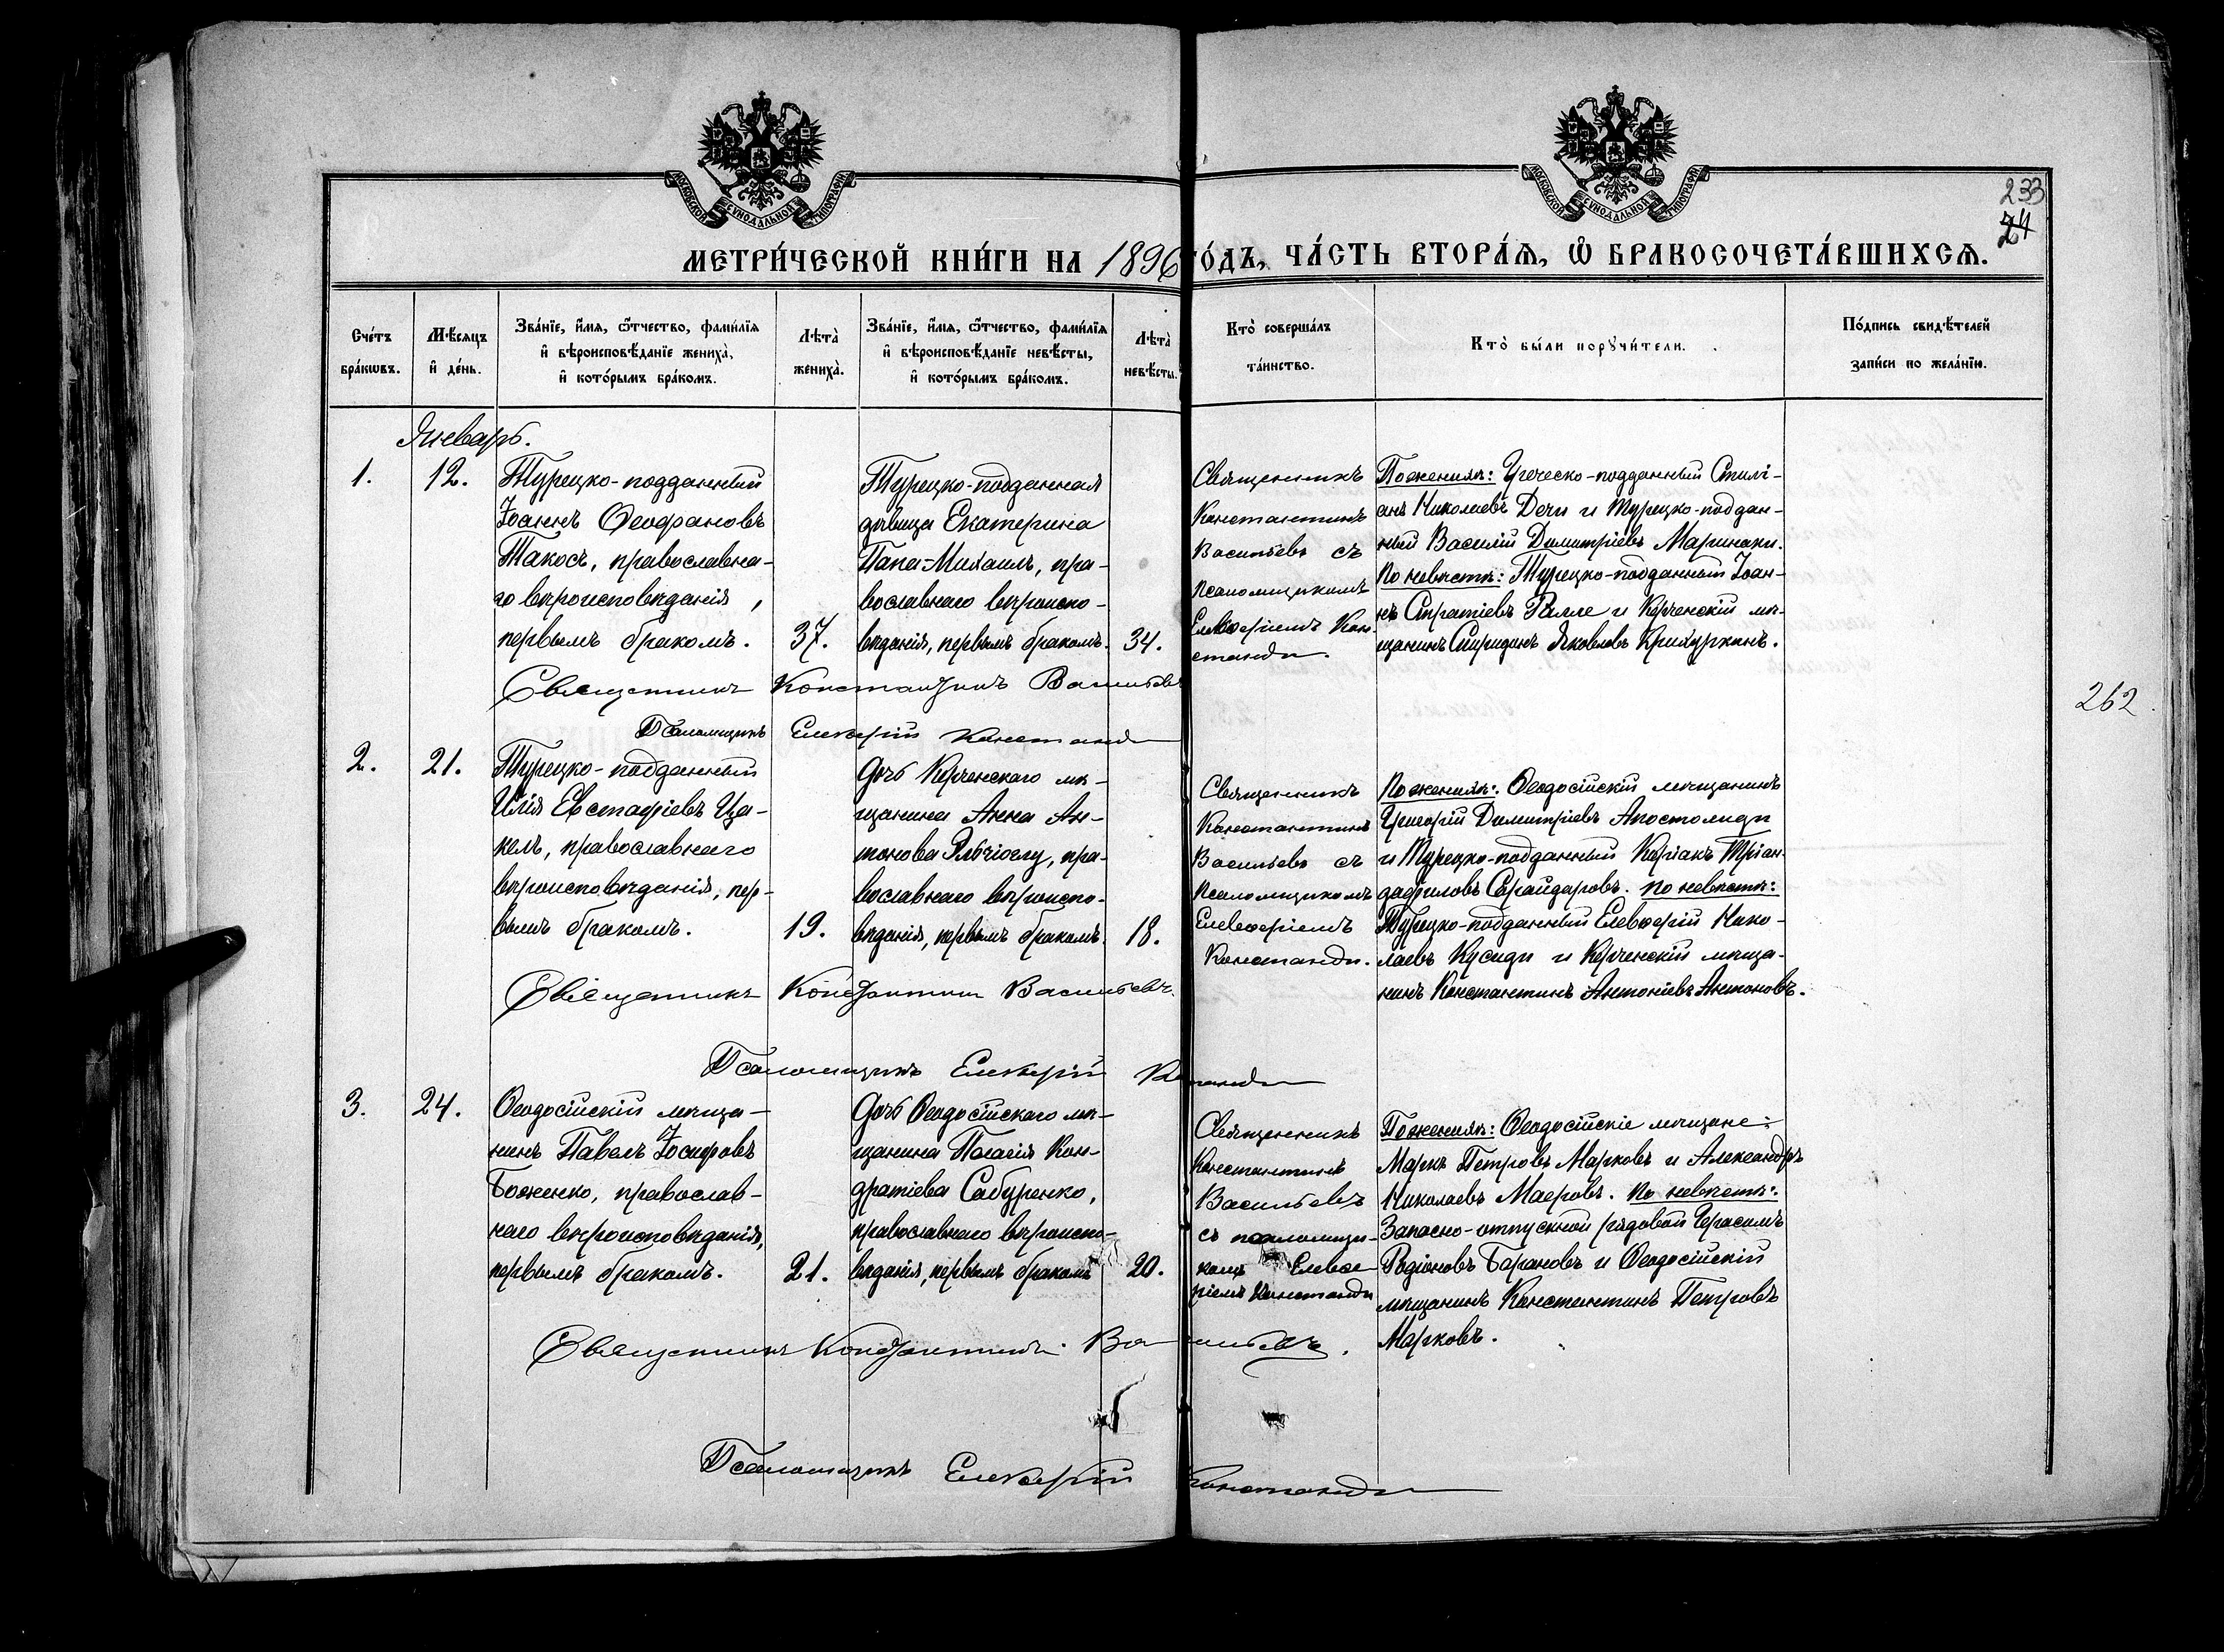 МОСКОВСКОЙ СѴНОДАЛЬНОЙ ТИПОГРАФІИ
МОСКОВСКОЙ СѴНОДАЛЬНОЙ ТИПОГРАФІИ
233
24
МЕТРИ́ЧЕСКОЙ КНИ́ГИ НА 1896 ГО́ДЪ, ЧА́СТЬ ВТОРА́Ѧ, Ѽ БРАКОСОЧЕТА́ВШИХСѦ.
Сче́тъ
бра́кѡвъ.
Мѣ́сѧцъ
и҆ де́нь.
Зва́нїе, и҆́мѧ, ѻ҆́тчество, фами́лїѧ
и҆ вѣроисповѣ́данїе жениха̀,
и҆ кото́рымъ бра́комъ.
Лѣта̀
жениха̀.
Зва́нїе, и҆́мѧ, ѻ҆́тчество, фами́лїѧ
и҆ вѣроисповѣ́данїе невѣ́сты,
и҆ кото́рымъ бра́комъ.
Лѣта̀
невѣ́сты.
Кто̀ соверша́лъ
та́инство.
Кто̀ бы́ли порꙋчи́тели.
По́дпись свидѣ́телей
за́писи по жела́нїю.
Январь.
1.
12.
Турецко-подданный
Іоаннъ Ѳеофановъ
Такосъ, православна-
го вѣроисповѣданія,
первымъ бракомъ.
37.
Турецко-подданная
дѣвица Екатерина
Папа-Михаилъ, пра-
вославнаго вѣроиспо-
вѣданія, первымъ бракомъ.
34.
Священникъ
Константинъ
Васильевъ съ
псаломщикомъ
Елевѳеріемъ Кон-
станди.
По женихѣ: Греческо-подданный Стилі-
анъ Николаевъ Дечи и Турецко-поддан-
ный Василій Димитріевъ Маринаки.
По невѣстѣ: Турецко-подданный Іоан-
нъ Стратіевъ Ралле и Керченскій мѣ-
щанинъ Спиридонъ Яковлевъ Крихурканъ.
Священникъ Константинъ Васильевъ
Псаломщикъ Елевѳерій Констанди
262.
2.
21.
Турецко-подданный
Илія Евстафіевъ Ца-
келъ, православнаго
вѣроисповѣданія, пер-
вымъ бракомъ.
19.
Дочь Керченскаго мѣ-
щанина Анна Ан-
тонова Эльчіоглу, пра-
вославнаго вѣроиспо-
вѣданія, первымъ бракомъ.
18.
Священникъ
Константинъ
Васильевъ съ
псаломщикомъ
Елевѳеріемъ
Констанди.
По женихѣ: Ѳеодосійскій мѣщанинъ
Григорій Димитріевъ Апостолиди
и Турецко-подданный Киріакъ Тріан-
дафиловъ Сарайдаровъ. По невѣстѣ:
Турецко-подданный Елевѳерій Нико-
лаевъ Кусиди и Керченскій мѣща-
нинъ Константинъ Антоніевъ Антоновъ.
Священникъ Константинъ Васильевъ.
Псаломщикъ Елевѳерій Констанди
3.
24.
Ѳеодосійскій мѣща-
нинъ Павелъ Іосифовъ
Боженко, православ-
наго вѣроисповѣданія,
первымъ бракомъ.
21.
Дочь Ѳеодосійскаго мѣ-
щанина Пелагія Кон-
дратіева Сабуренко,
православнаго вѣроиспо-
вѣданія, первымъ бракомъ
20.
Священникъ
Константинъ
Васильевъ
съ псаломщи-
комъ Елевѳе-
ріемъ Констанди
По женихѣ: Ѳеодосійскіе мѣщане:
Маркъ Петровъ Марковъ и Александръ
Николаевъ Маеровъ. По невѣстѣ:
Запасно-отпускной рядовой Герасимъ
Родіоновъ Барановъ и Ѳеодосійскій
мѣщанинъ Константинъ Петровъ
Марковъ.
Священникъ Константинъ Васильевъ.
Псаломщикъ Елевѳерій Констанди